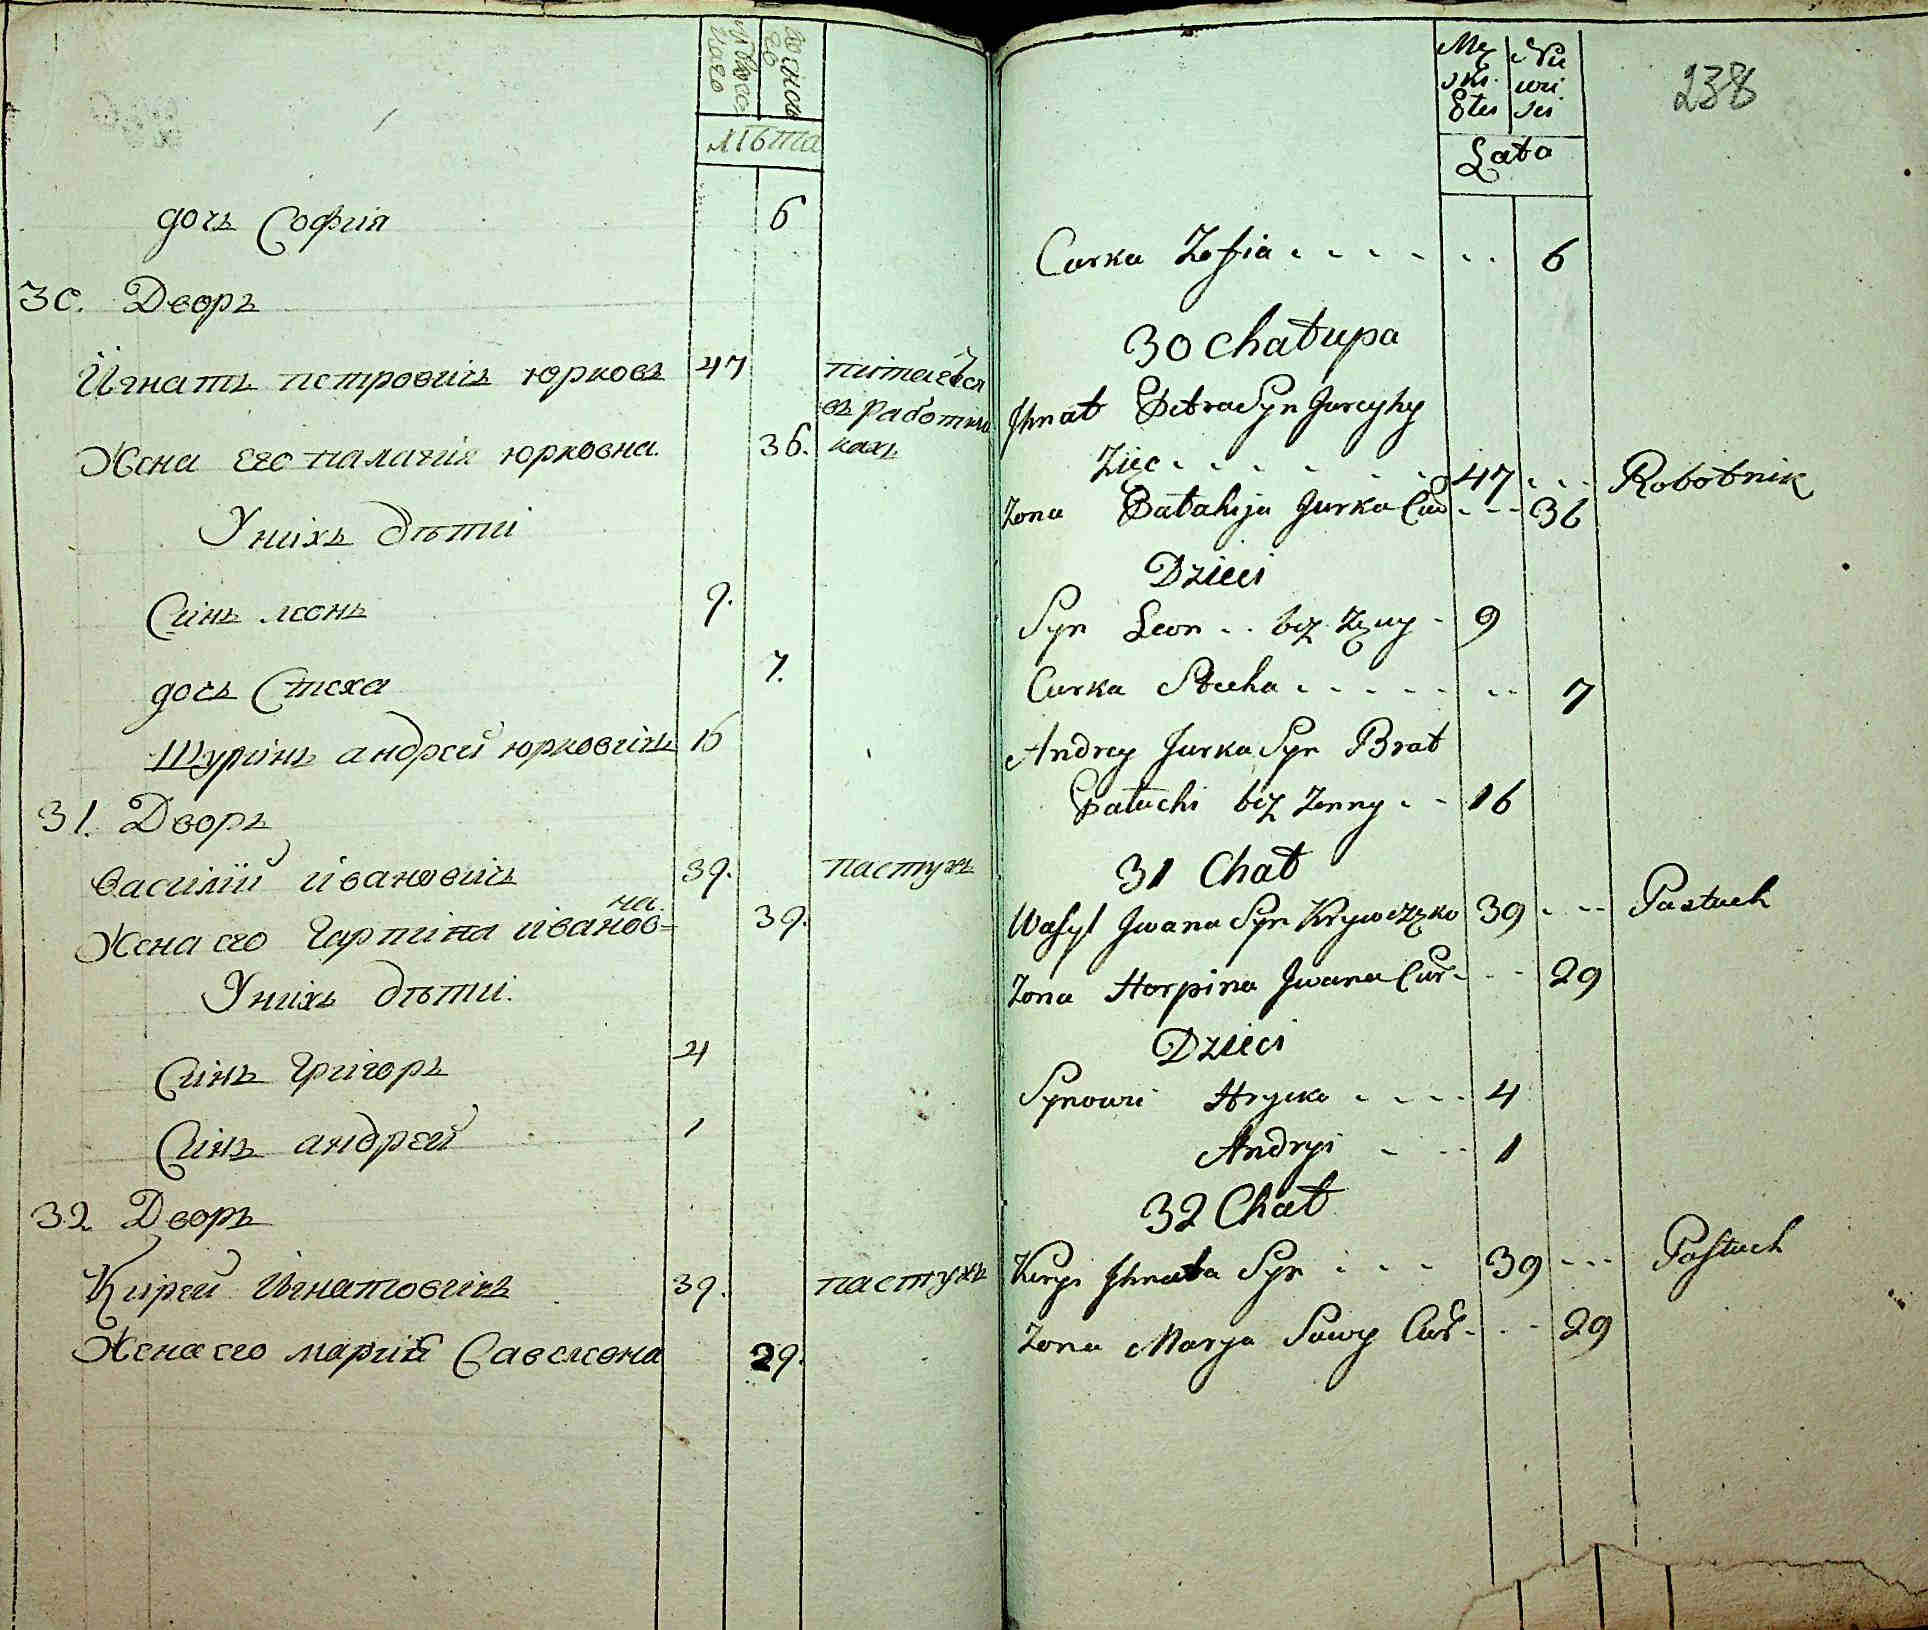 мужеска
пола
женска
лѣта
дочь София 6
30. Дворъ
Йгнатъ петровичь юрковъ 47 питаетъся
въ работни
Жена его палагия юрковна. 36. кахъ
У нихъ дѣти
Синъ леонъ 9.
дочь Стеха 7.
Шуринъ андрей юрковичь 16
31. Дворъ
Василий йвановичь 39. пастухъ
на
Жена его Гарпина йванов= 39.
У нихъ дѣти.
Синъ Григоръ 4
Синъ андрей 1
32 Дворъ
Кирей Йгнатовичь 39. пастухъ
Жена его мария Савелевна 29.
238
Lata
Curka Zofia . . . . . . . 6
30 Chałupa
Jhnat Petra Syn Jurczyhy
Zięc . . . . . . 47 . . . Robotnik
Zona Pałahija Jurka Cur . - - 36
Dzieci
Syn Leon . . bez żeny - 9
Curka Stecha . . . . . . . 7
Andrey Jurka Syn Brat
Pałachi bez Zenny . - 16
31 Chał
Wasyl Jwana Syn Krywczyko 39 . - - Pastuch
Zona Horpina Jwana Cur - - - 29
Dzieci
Synowi Hrycko . . . . 4
Andryi - - - 1
32 Chał
Kiryi Jhnata Syn . . . . 39 - - - Pastuch
Zona Marya Sawy Cur - . - - 29